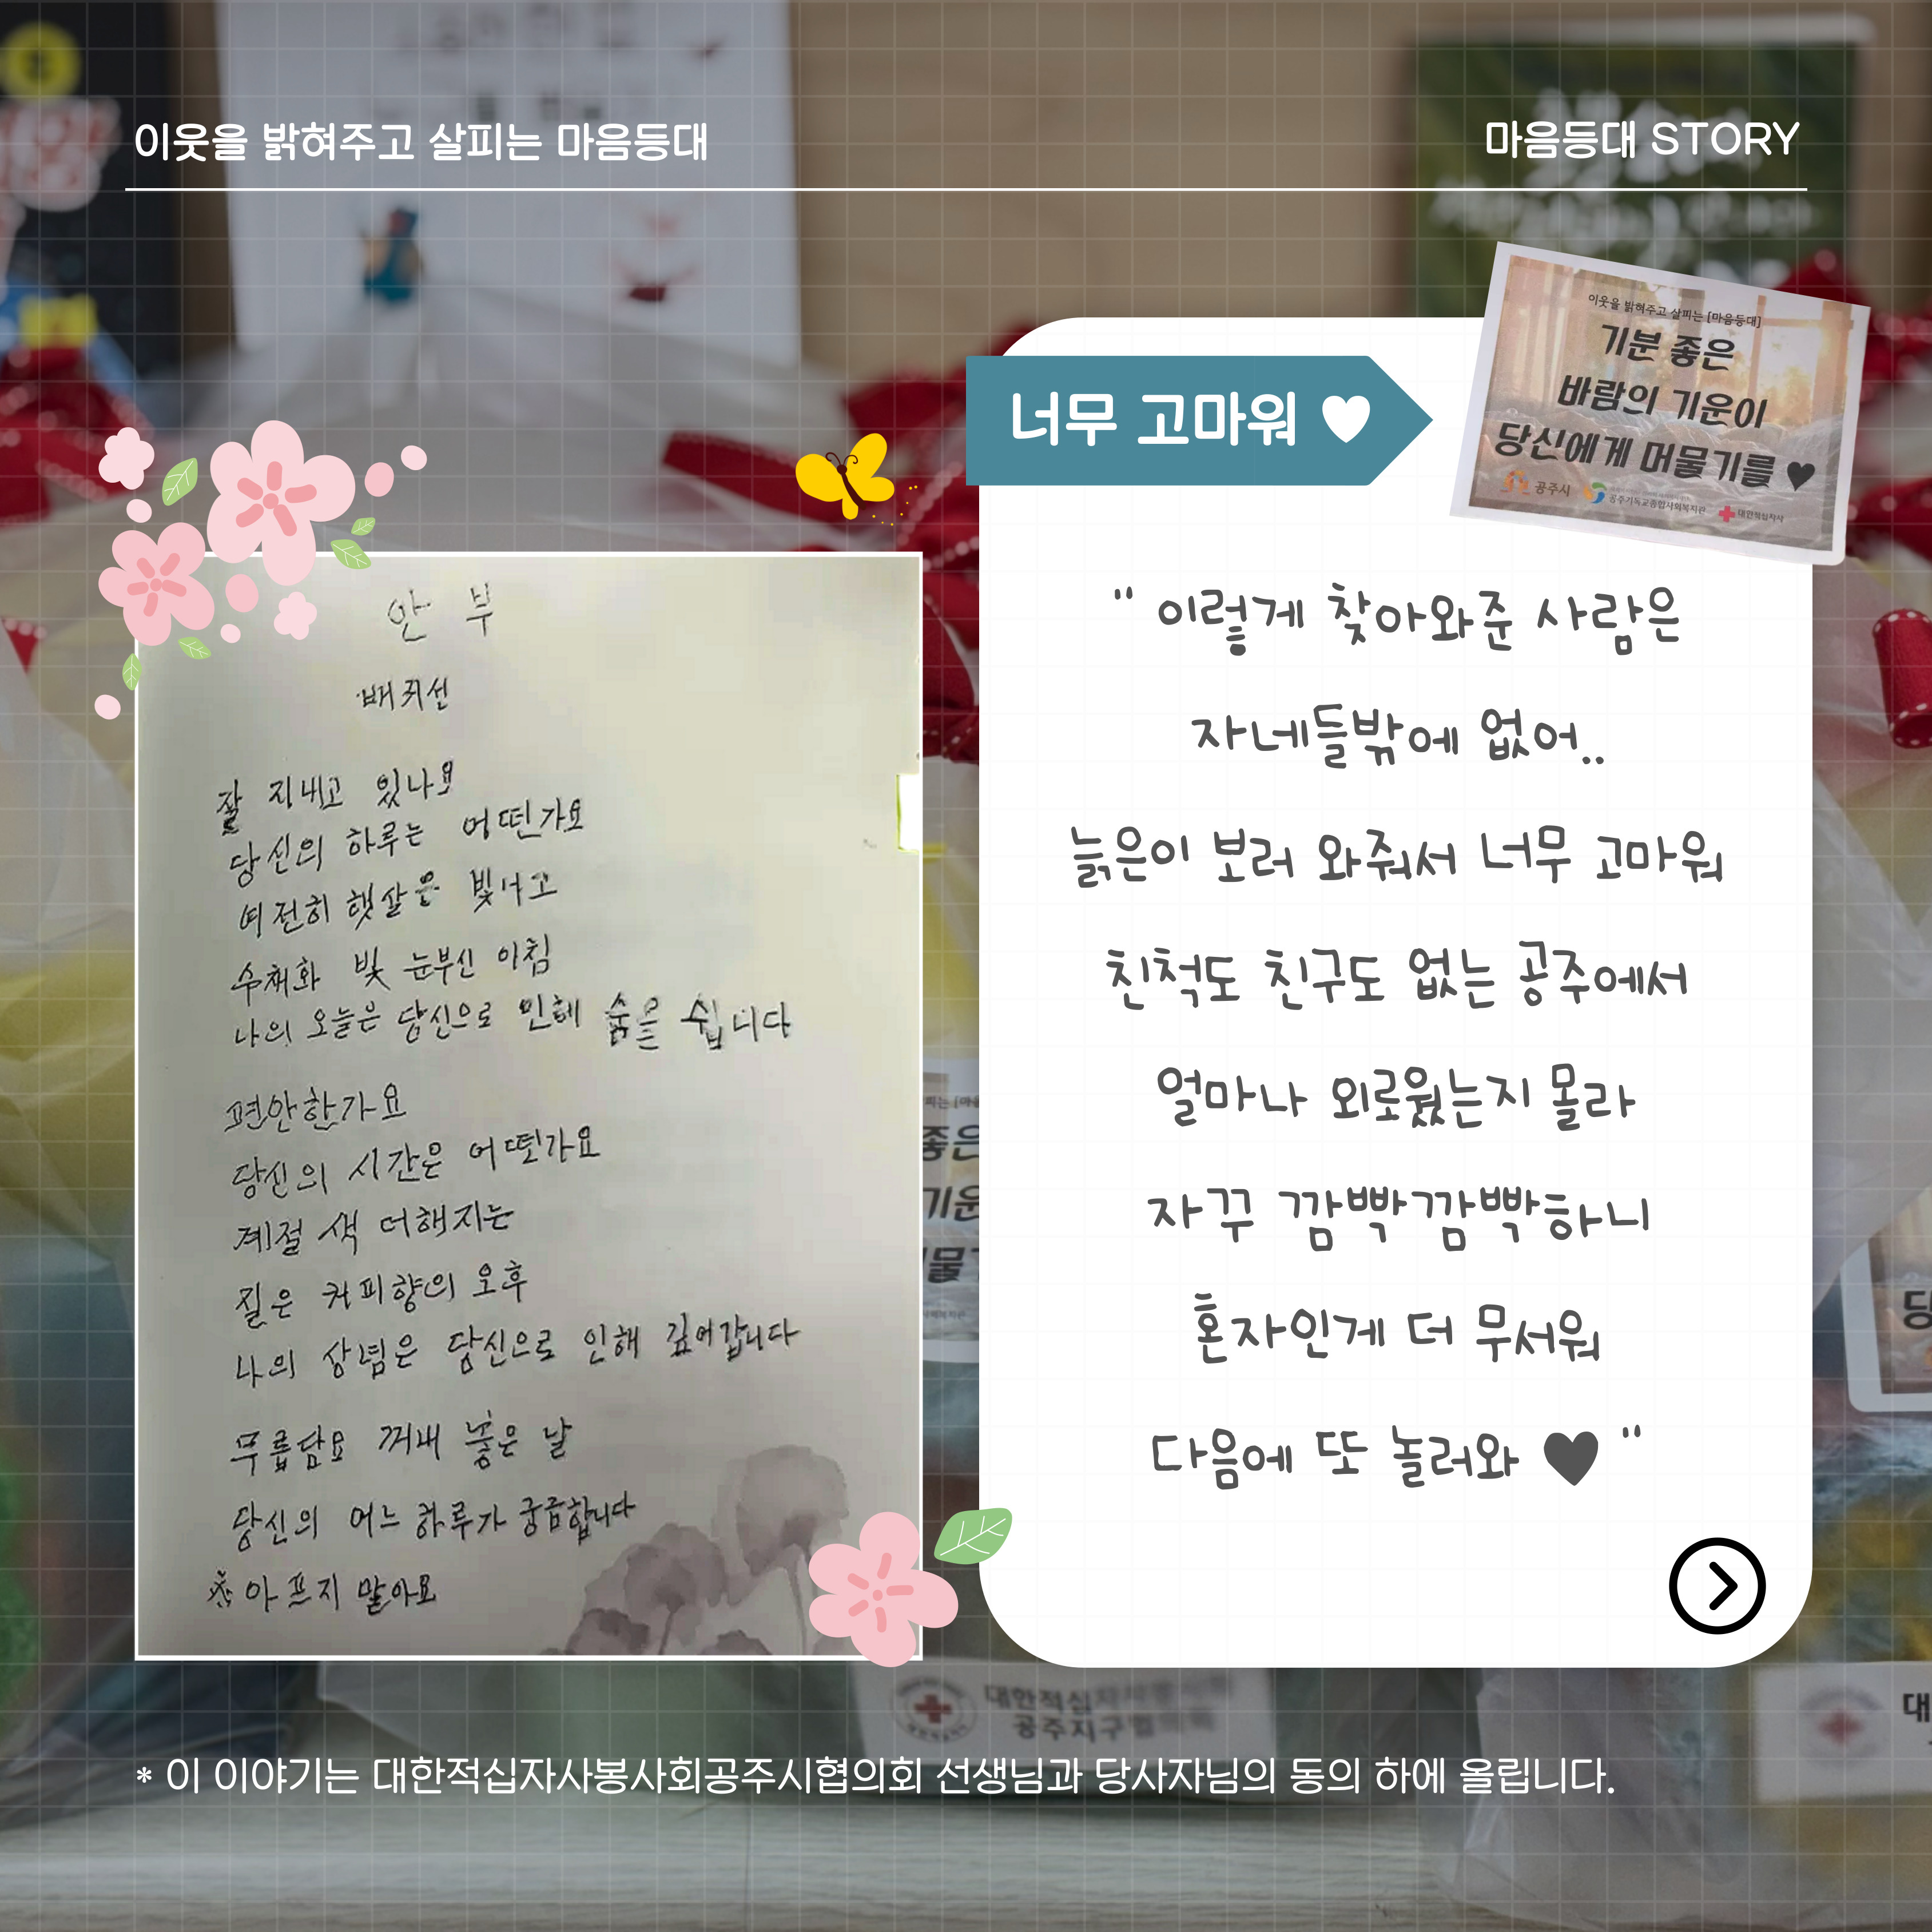 이웃을 밝혀주고 살피는 마음등대
마음등대 STORY
이웃을 밝혀주고 살피는 [마음등대]
기분 좋은
바람의 기운이
당신에게 머물기를 ♥
공주시
공주기독교종합사회복지관
대한적십자사
너무 고마워 ♥
안 부
배귀선
잘 지내고 있나요
당신의 하루는 어떤가요
여전히 햇살은 빛나고
수채화 빛 눈부신 아침
나의 오늘은 당신으로 인해 숨을 쉽니다
편안한가요
당신의 시간은 어떤가요
계절 색 더해지는
짙은 커피향의 오후
나의 상념은 당신으로 인해 깊어갑니다
무릎담요 꺼내 놓은 날
당신의 어느 하루가 궁금합니다
아프지 말아요
" 이렇게 찾아와준 사람은
자네들밖에 없어..
늙은이 보러 와줘서 너무 고마워
친척도 친구도 없는 공주에서
얼마나 외로웠는지 몰라
자꾸 깜빡깜빡하니
혼자인게 더 무서워
다음에 또 놀러와 ♥ "
대한적십
공주지구
* 이 이야기는 대한적십자사봉사회공주시협의회 선생님과 당사자님의 동의 하에 올립니다.